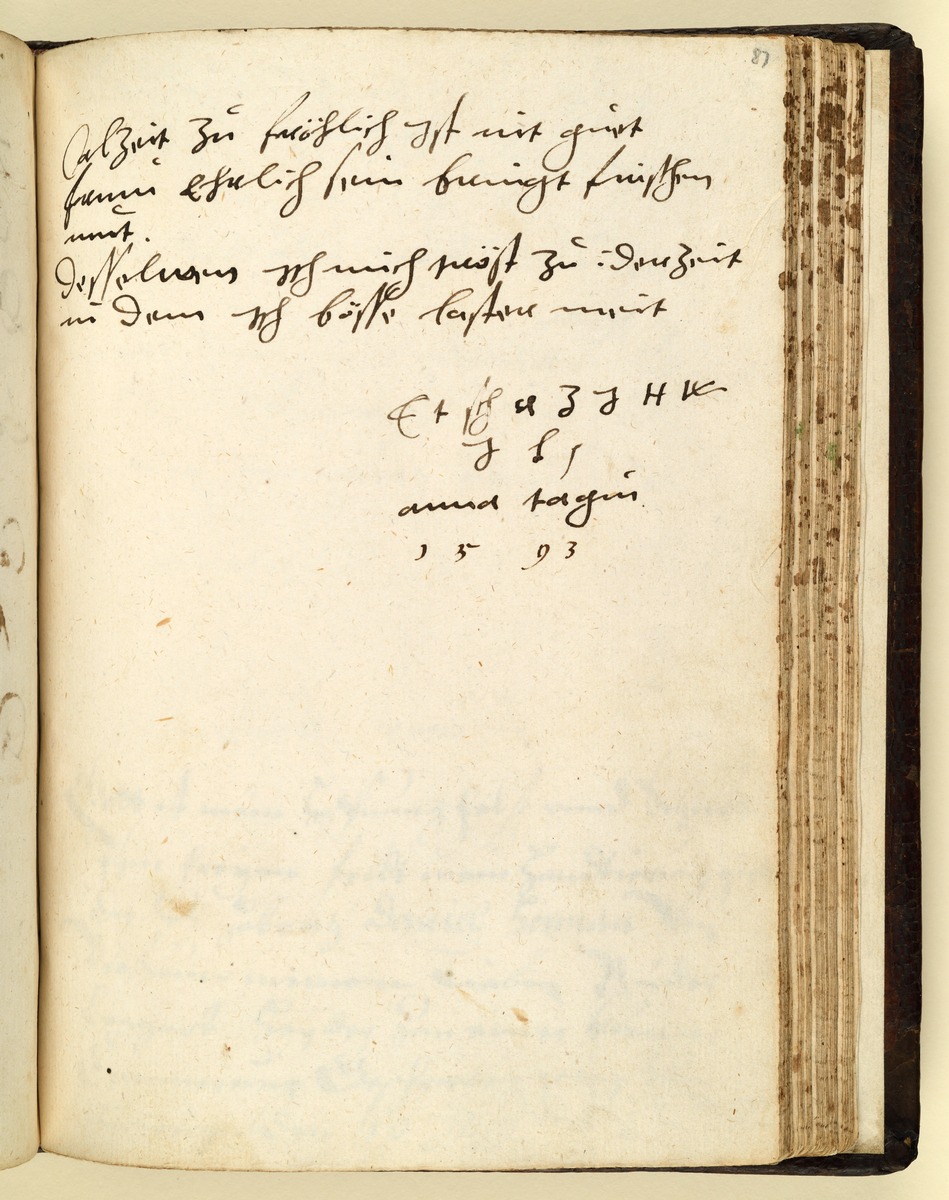 87
alzeit zů fröhlich ist nit guet
frum Ehrlich sein bringt frischen
mut.
desselwen ich mich tröst zů iderzeit
in dem ich bösse laster meit
E t sch a Z J H K
J L
anna tagin
1593